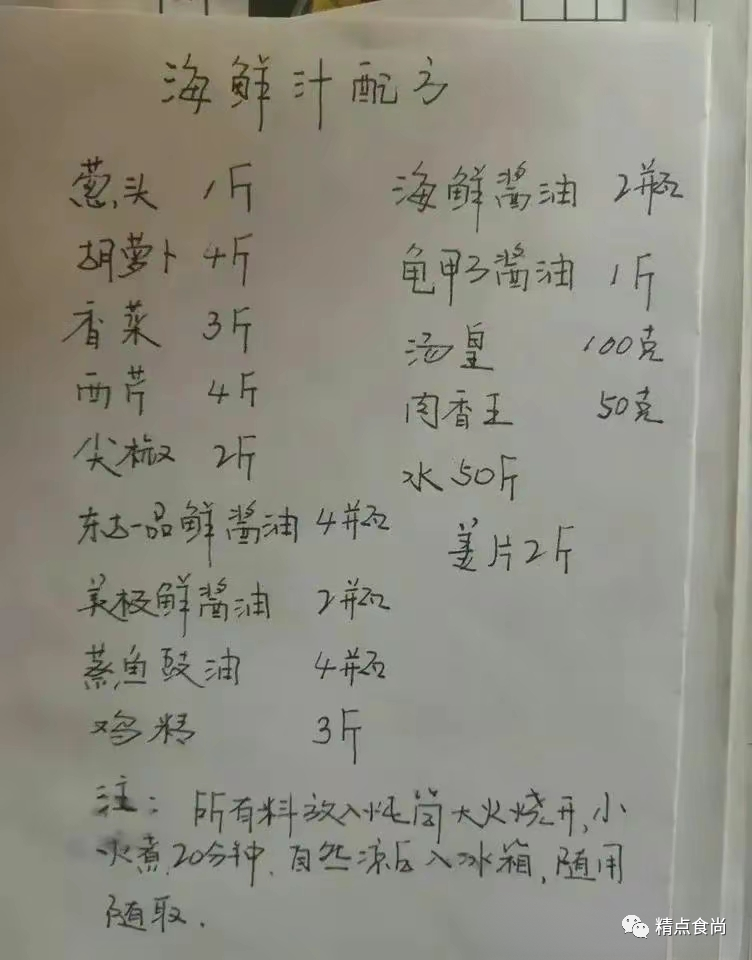 海鲜汁配方
葱头 1斤
胡萝卜 4斤
香菜 3斤
西芹 4斤
尖椒 2斤
东古一品鲜酱油 4瓶
美极鲜酱油 2瓶
蒸鱼豉油 4瓶
鸡精 3斤
海鲜酱油 2瓶
龟甲万酱油 1斤
汤皇 100克
肉香王 50克
水 50斤
姜片 2斤
注：所有料放入炖筒大火烧开，小
火煮20分钟，自然凉后入冰箱，随用
随取．
精点食尚